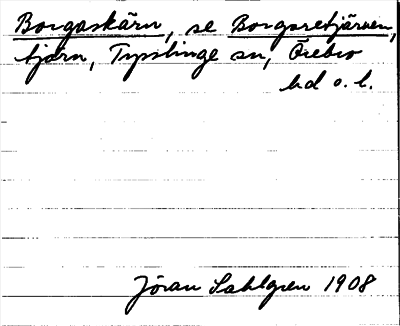 Borgaskärn, se Borgaretjärnen,
tjärn, Tysslinge sn, Örebro
hd o. l.
Jöran Sahlgren 1908